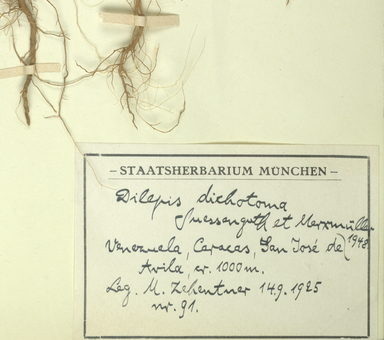 – STAATSHERBARIUM MÜNCHEN –
Dilepis dichotoma
Suessenguth et Merxmüller
Venezuela, Caracas, San José de (1948
Avila, cr. 1000 m.
Leg. M. Zehentner 14.9.1925
nr. 91.